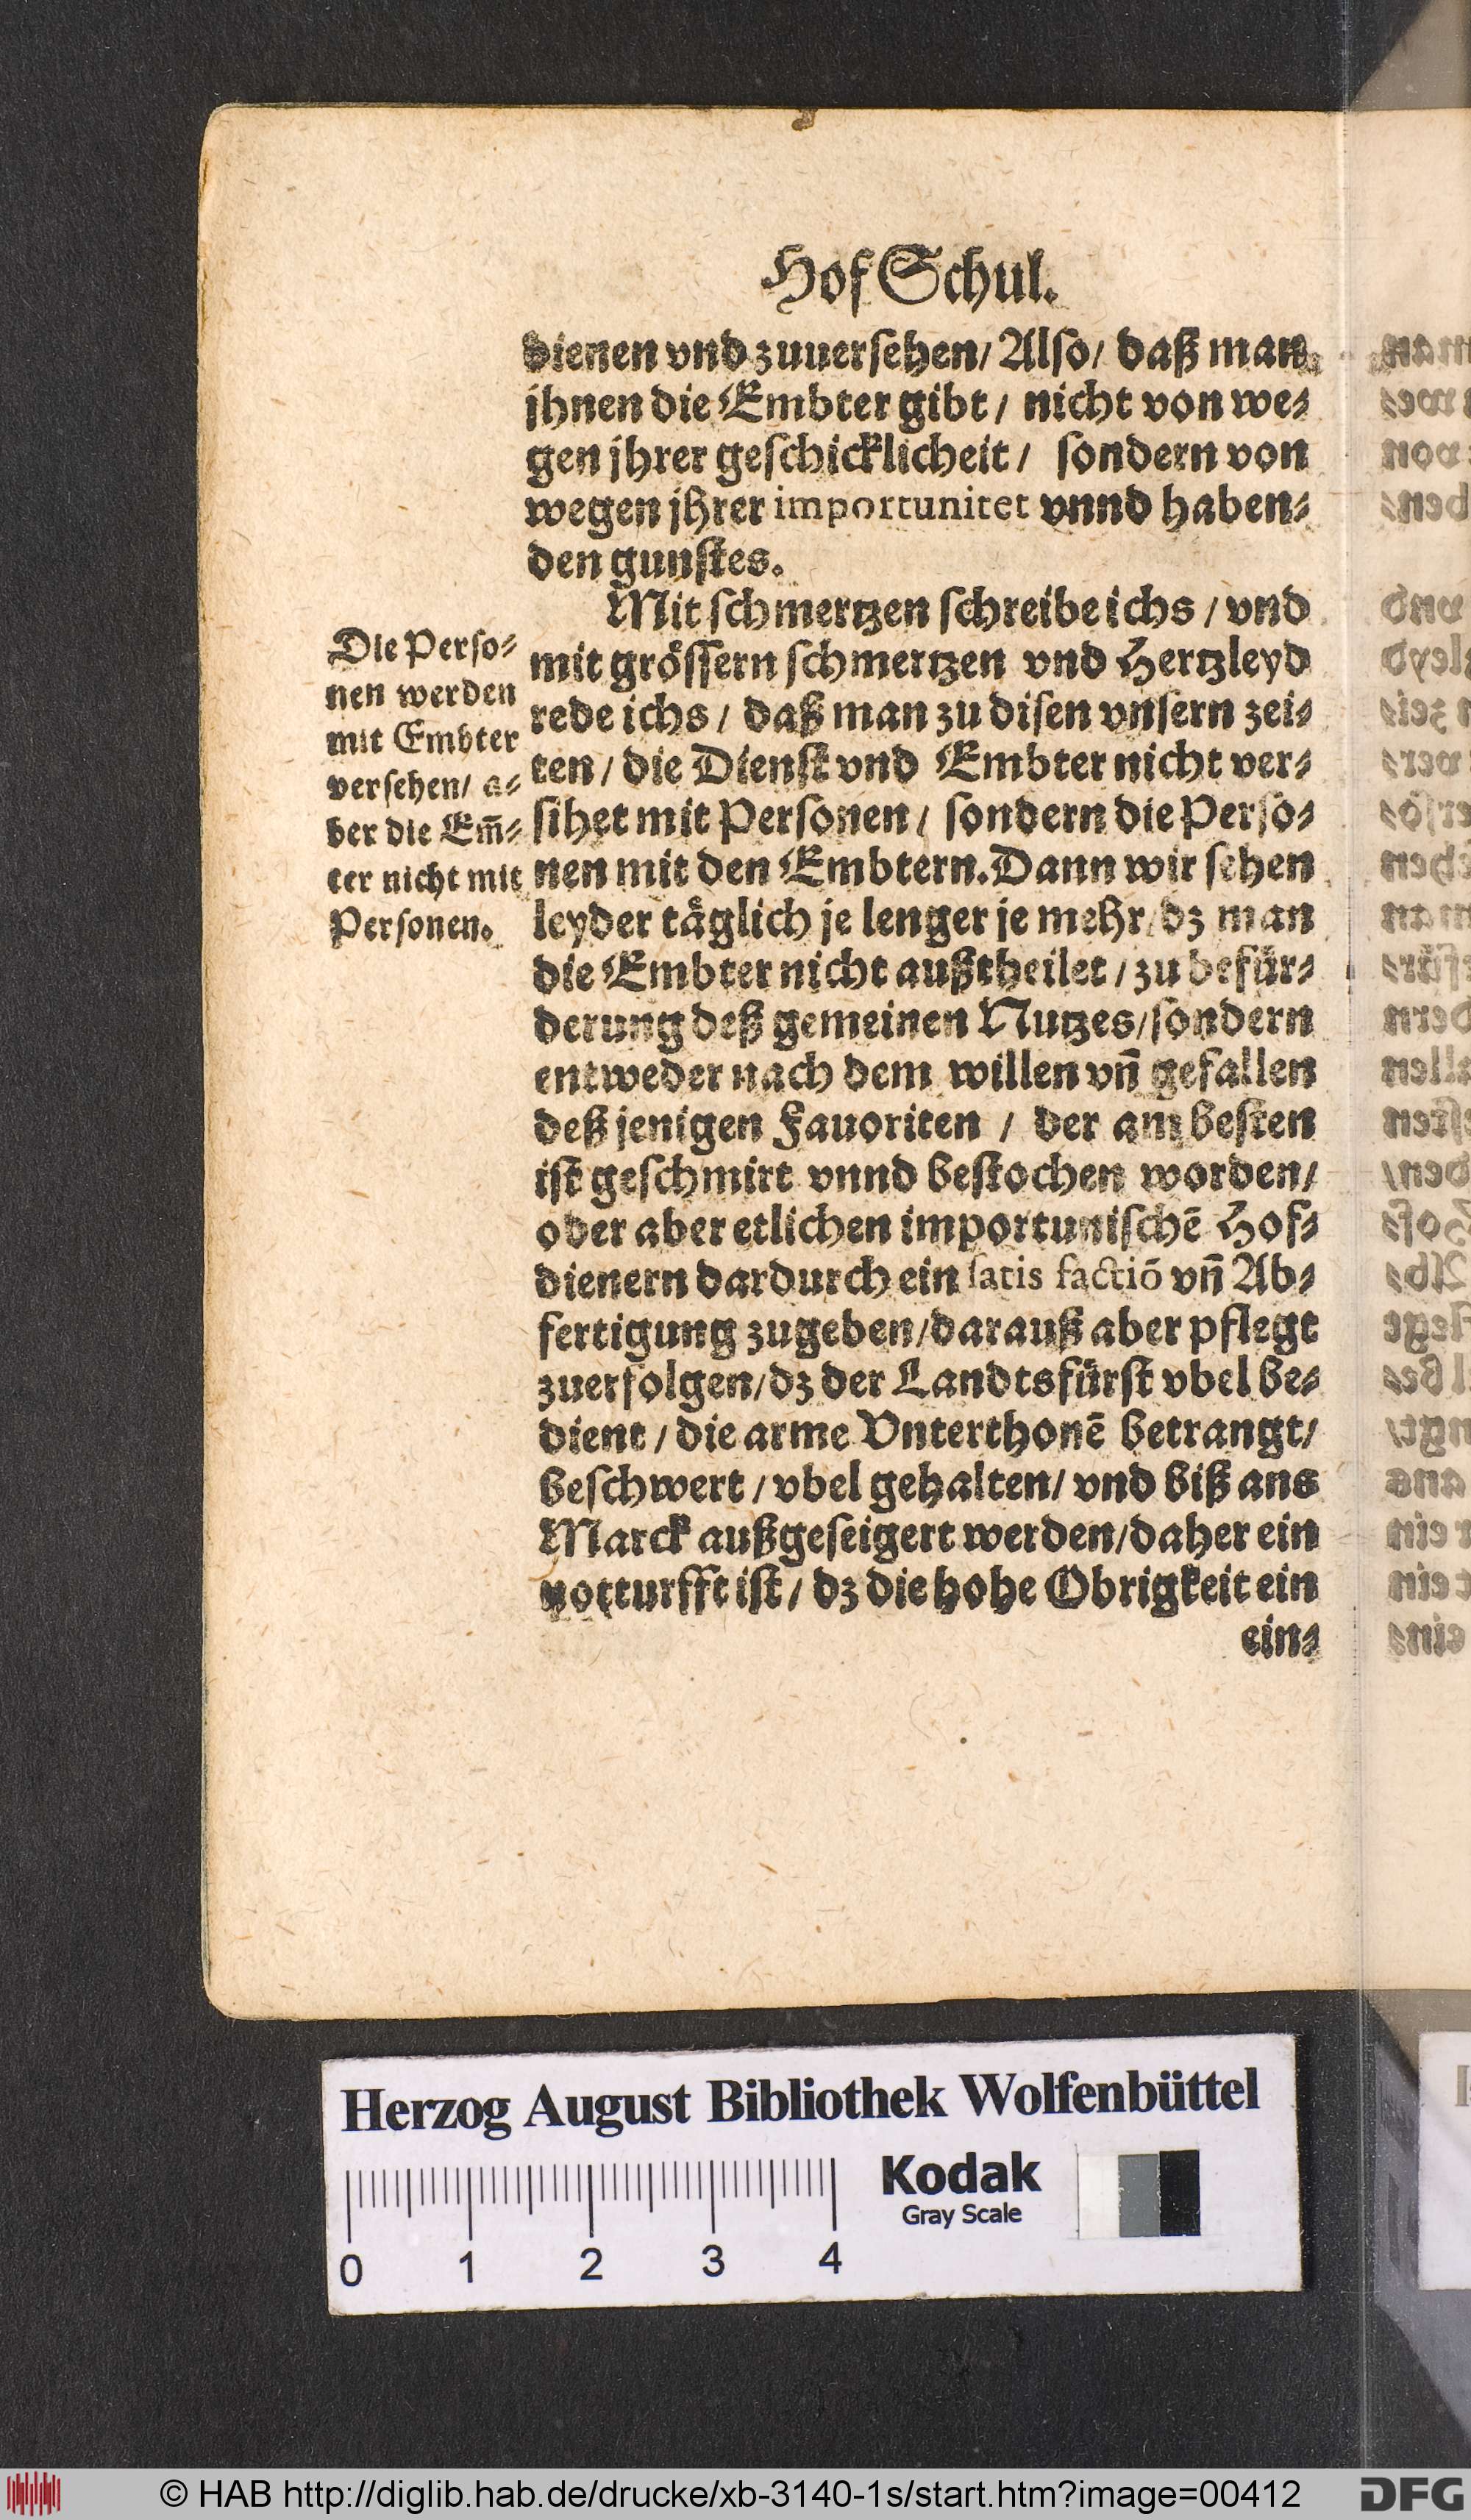 Hof Schul.
dienen vnd zuuersehen/ Also/ daß man
jhnen die Embter gibt / nicht von we⸗
gen jhrer geschicklicheit / sondern von
wegen jhrer importunitet vnnd haben⸗
den gunstes.
Mit schmertzen schreibe ichs / vnd
mit grössern schmertzen vnd Hertzleyd
rede ichs / daß man zu disen vnsern zei⸗
ten / die Dienst vnd Embter nicht ver⸗
sihet mit Personen / sondern die Perso⸗
nen mit den Embtern. Dann wir sehen
leyder täglich je lenger je mehr/ dz man
die Embter nicht außtheilet / zu befür⸗
derung deß gemeinen Nutzes/ sondern
entweder nach dem willen vñ gefallen
deß jenigen Fauoriten / der am besten
ist geschmirt vnnd bestochen worden/
oder aber etlichen importunischē Hof⸗
dienern dardurch ein satis factiō vñ Ab⸗
fertigung zugeben/ darauß aber pflegt
zuerfolgen/ dz der Landtsfürst vbel be⸗
dient / die arme Vnterthonē betrangt/
beschwert / vbel gehalten/ vnd biß ans
Marck außgeseigert werden/ daher ein
notturfft ist / dz die hohe Obrigkeit ein
ein⸗
Die Perso⸗
nen werden
mit Embter
versehen/ a⸗
ber die Em̄⸗
ter nicht mit
Personen.
Herzog August Bibliothek Wolfenbüttel
Kodak
Gray Scale
0 1 2 3 4
© HAB http://diglib.hab.de/drucke/xb-3140-1s/start.htm?image=00412
DFG